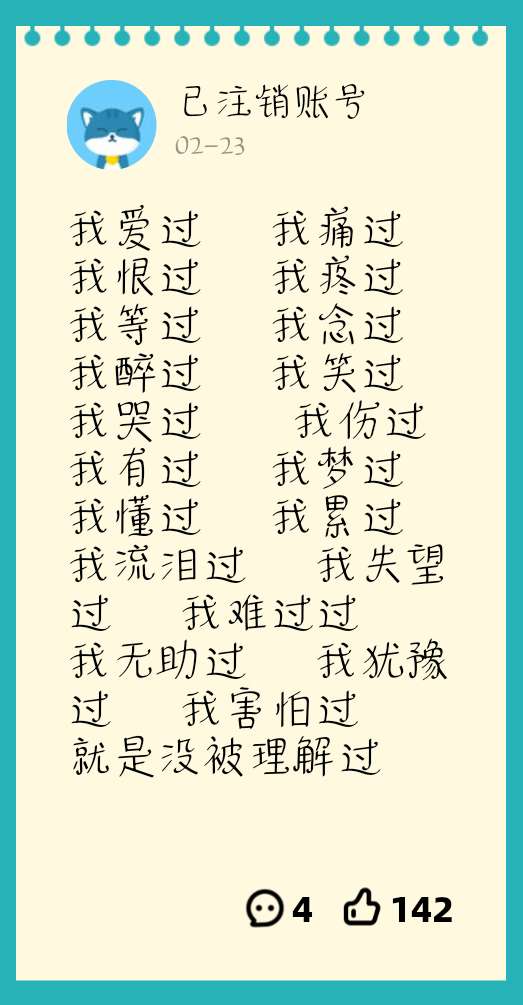 已注销账号
02-23
我爱过 我痛过
我恨过 我疼过
我等过 我念过
我醉过 我笑过
我哭过 我伤过
我有过 我梦过
我懂过 我累过
我流泪过 我失望
过 我难过过
我无助过 我犹豫
过 我害怕过
就是没被理解过
4 142